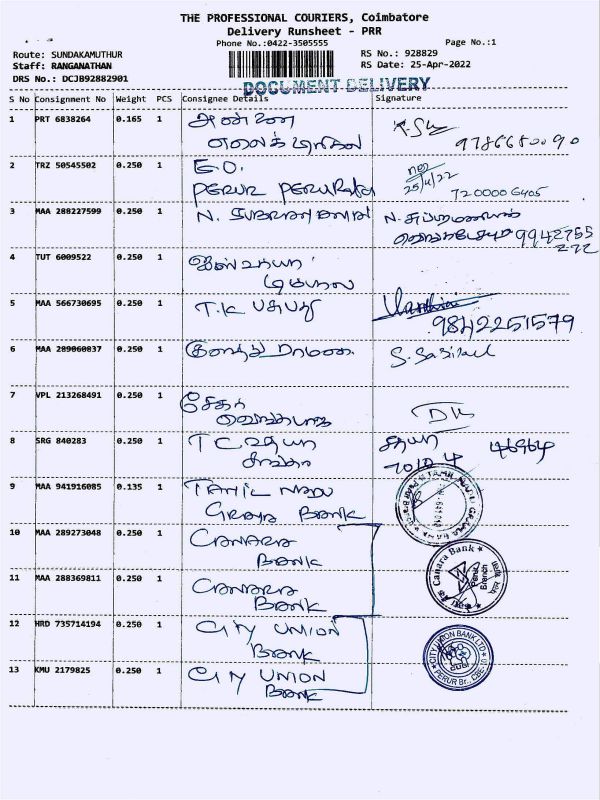 THE PROFESSIONAL COURIERS, Coimbatore
Delivery Runsheet - PRR
Phone No.:0422-3505555
Page No.:1
Route: SUNDAKAMUTHUR
RS No.: 928829
Staff: RANGANATHAN
RS Date: 25-Apr-2022
DRS No.: DCJB92882901
DOCUMENT DELIVERY
S No Consignment No Weight PCS Consignee Details Signature
1 PRT 6838264 0.165 1 அன்னை
எலைக்ட்ரிகல்
9786680090
2 TRZ 50545502 0.250 1 E.O.
PERUR
25/4/22
7200006405
3 MAA 288227599 0.250 1 N. N. சுப்ரமணியம்
9942755
272
4 TUT 6009522 0.250 1
5 MAA 566730695 0.250 1 T.K
9842251579
6 MAA 289060837 0.250 1
7 VPL 213268491 0.250 1 சேகர்
8 SRG 840283 0.250 1 T C சத்யா
9 MAA 941916085 0.135 1 TAMIL NADU
GRAMA BANK
10 MAA 289273048 0.250 1 CANARA
BANK
11 MAA 288369811 0.250 1 CANARA
BANK
Canara Bank
Perur
Branch
12 HRD 735714194 0.250 1 CITY UNION
BANK
13 KMU 2179825 0.250 1 CITY UNION
BANK
CITY UNION BANK LTD
CUB
PERUR Br., CBE-10